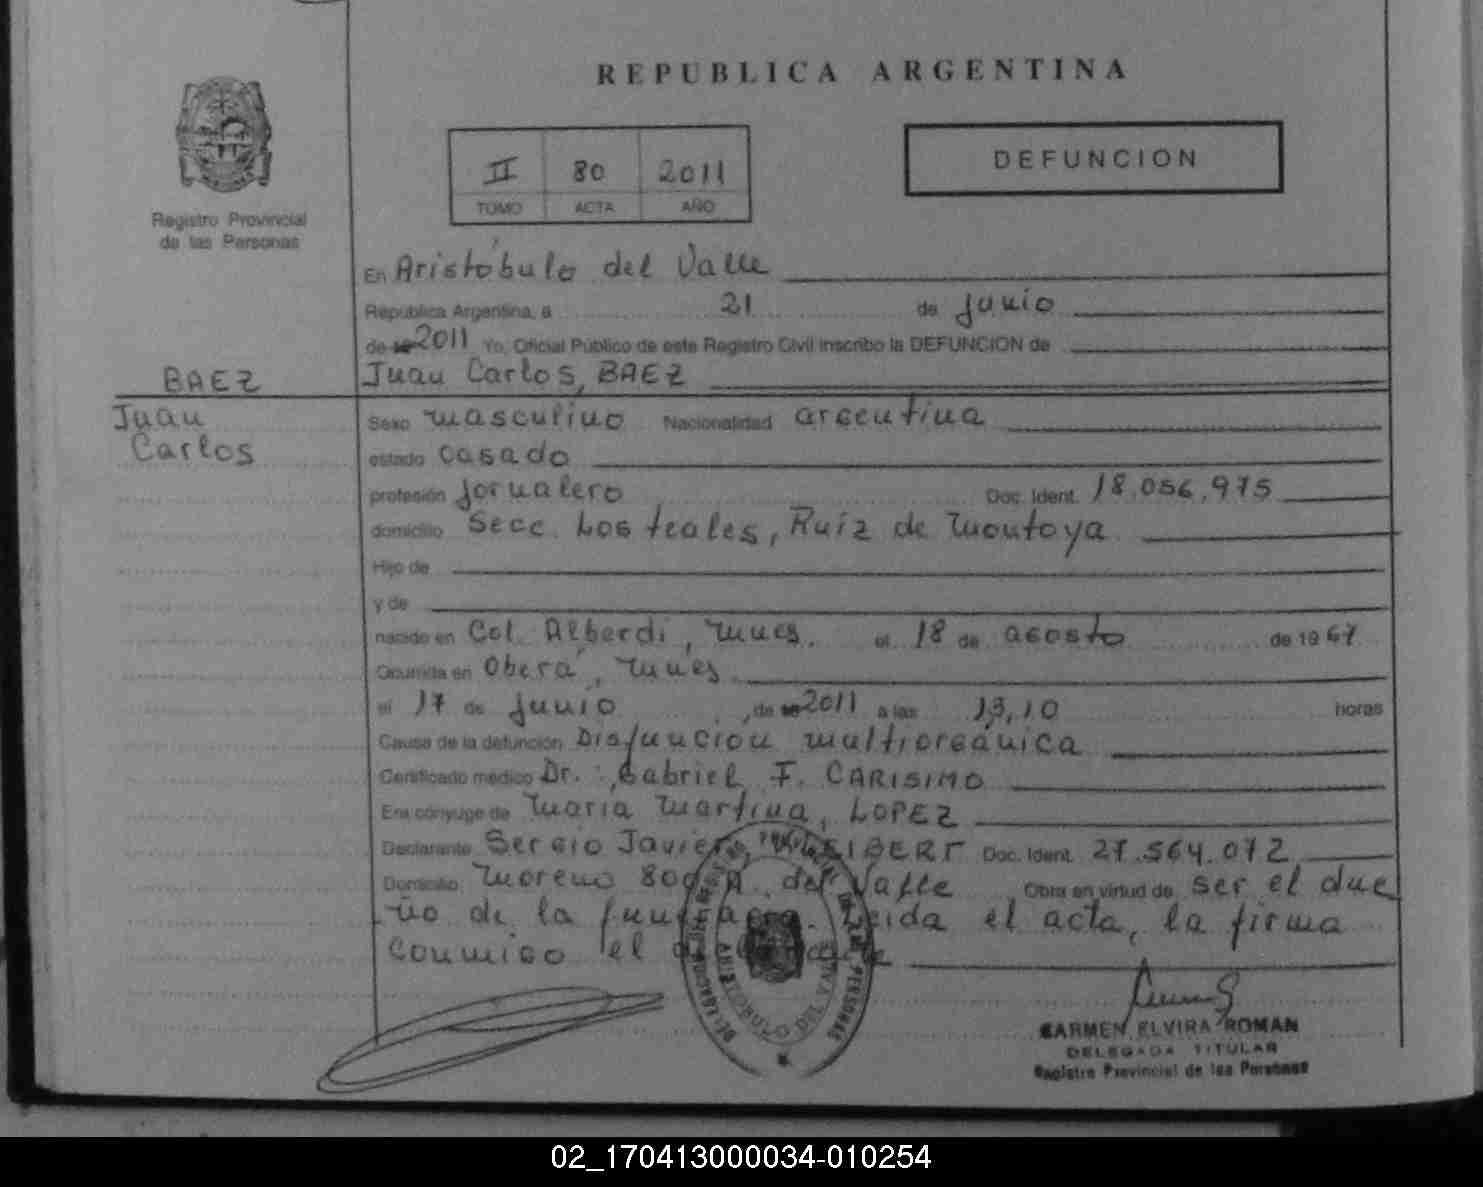 REPUBLICA ARGENTINA
II 80 2011
TOMO ACTA AÑO
DEFUNCION
Registro Provincial
de las Personas
En Aristóbulo del Valle
República Argentina, a 21 de junio
de 2011 Yo, Oficial Público de este Registro Civil inscribo la DEFUNCION de
BAEZ
Juan Carlos, BAEZ
Juan
Carlos
Sexo masculino Nacionalidad argentina
estado casado
profesión jornalero Doc. Ident. 18.056.975
domicilio Secc. Los teales, Ruíz de Montoya
Hijo de
y de
nacido en Col. Alberdi, Mnes. el 18 de agosto de 1967
Ocurrida en Oberá, Mnes
el 17 de junio, de 2011 a las 13,10 horas
Causa de la defunción Disfunción multiorgánica
Certificado médico Dr. Gabriel F. CARISIMO
Era cónyuge de María Martina, LOPEZ
Declarante Sergio Javier, Doc. Ident. 27.564.072
Domicilio Moreno 809 A. del Valle Obra en virtud de ser el due
ño de la funeraria. Leida el acta, la firma
conmigo el
DE LAS PERSONAS
ARISTOBULO DEL VALLE
CARMEN ELVIRA ROMAN
DELEGADA TITULAR
Registro Provincial de las Personas
02_170413000034-010254